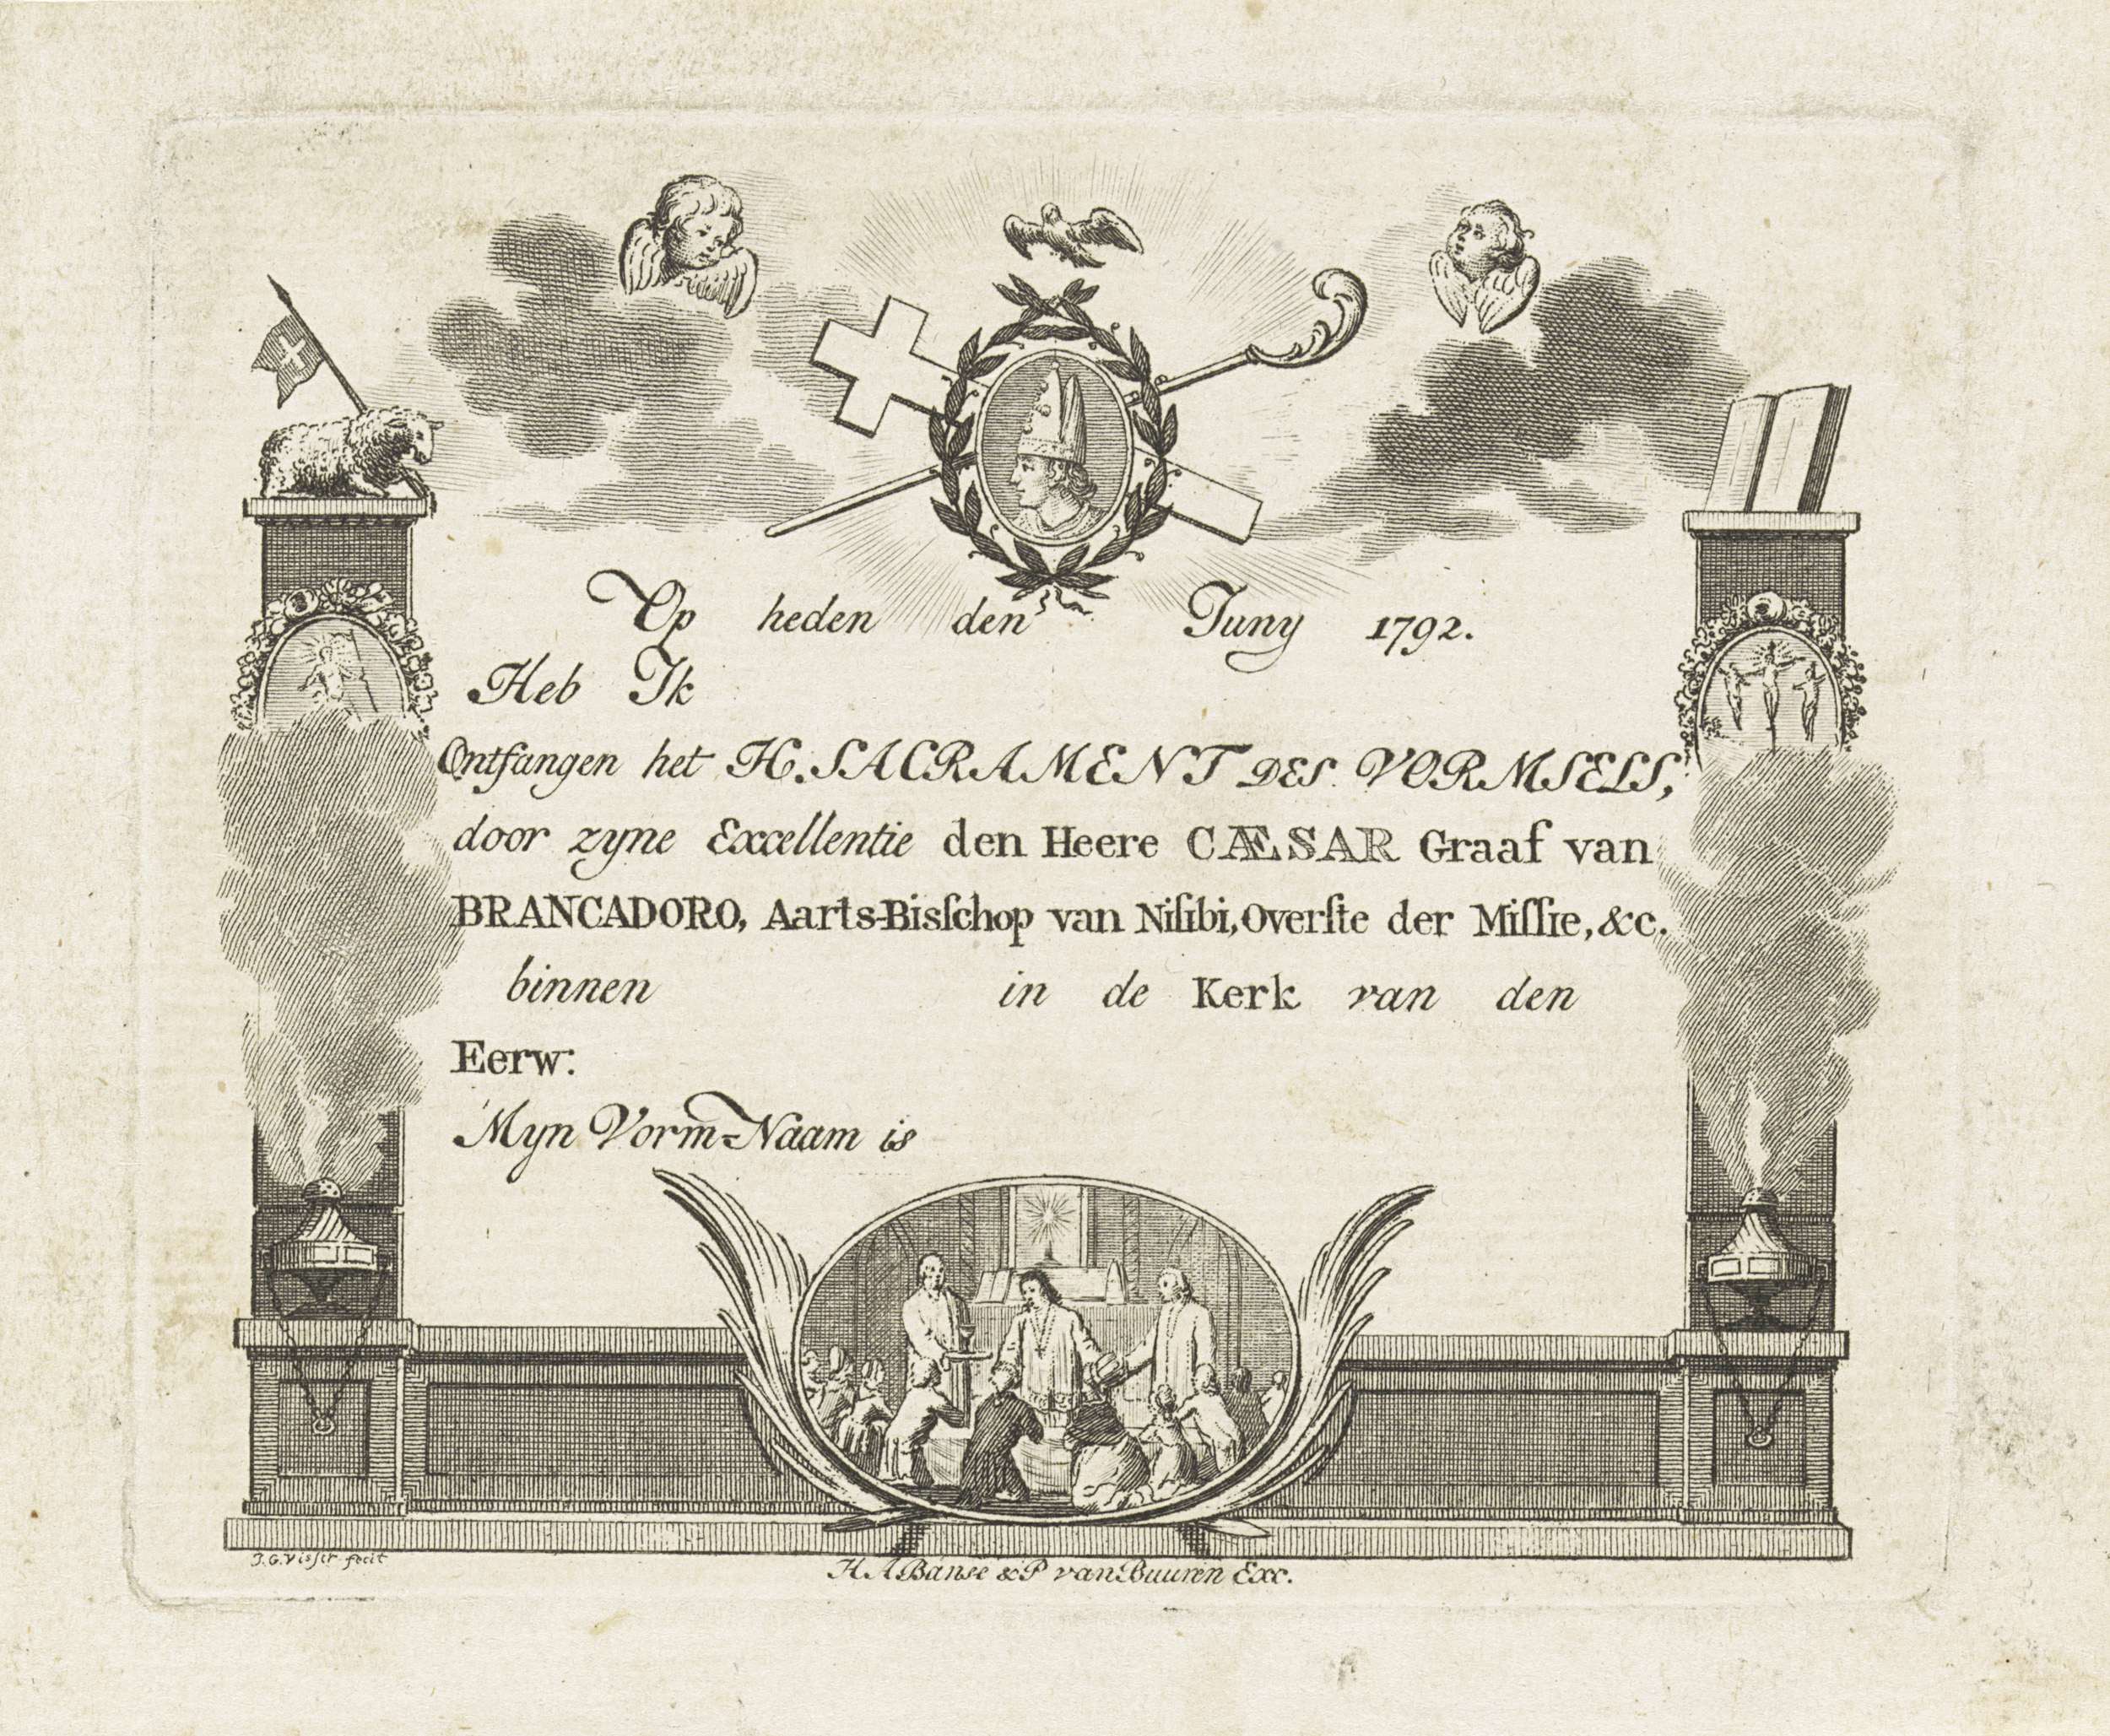 Op heden den Juny 1792.
Heb Ik
Ontfangen het H. SACRAMENT DES VORMSELS,
door zyne Excellentie den Heere CÆSAR Graaf van
BRANCADORO, Aarts-Bisſchop van Niſibi, Overſte der Miſſie, &c.
binnen in de Kerk van den
Eerw:
Myn Vorm-Naam is
J.G. Visſer fecit
H A Banse & P van Buuren Exc.